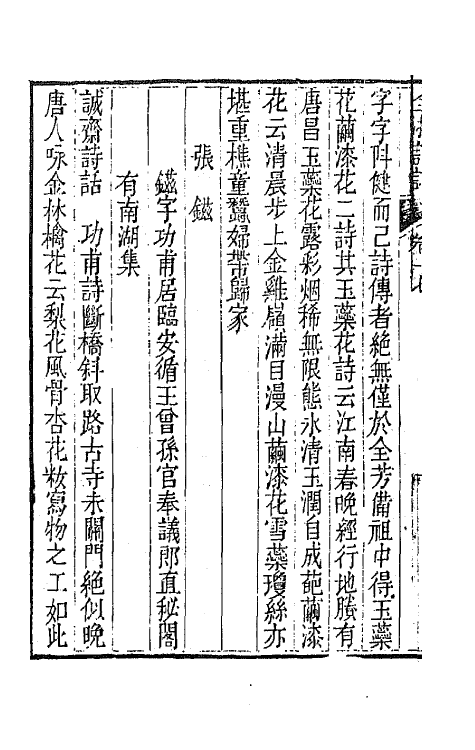 字字阧健而已詩傳者絶無僅於全芳備祖中得玉蘂
花繭漆花二詩其玉蘂花詩云江南春晚經行地勝有
唐昌玉蘂花露彩烟稀無限態氷清玉潤自成葩繭漆
花云清晨步上金雞嶺滿目漫山繭漆花雪蘂瓊絲亦
堪重樵童蠶婦帶歸家
張鎡
鎡字功甫居臨安循王曾孫官奉議郎直秘閣
有南湖集
誠齋詩話 功甫詩斷橋斜取路古寺未關門絶似晚
唐人咏金林檎花云梨花風骨杏花粧寫物之工如此